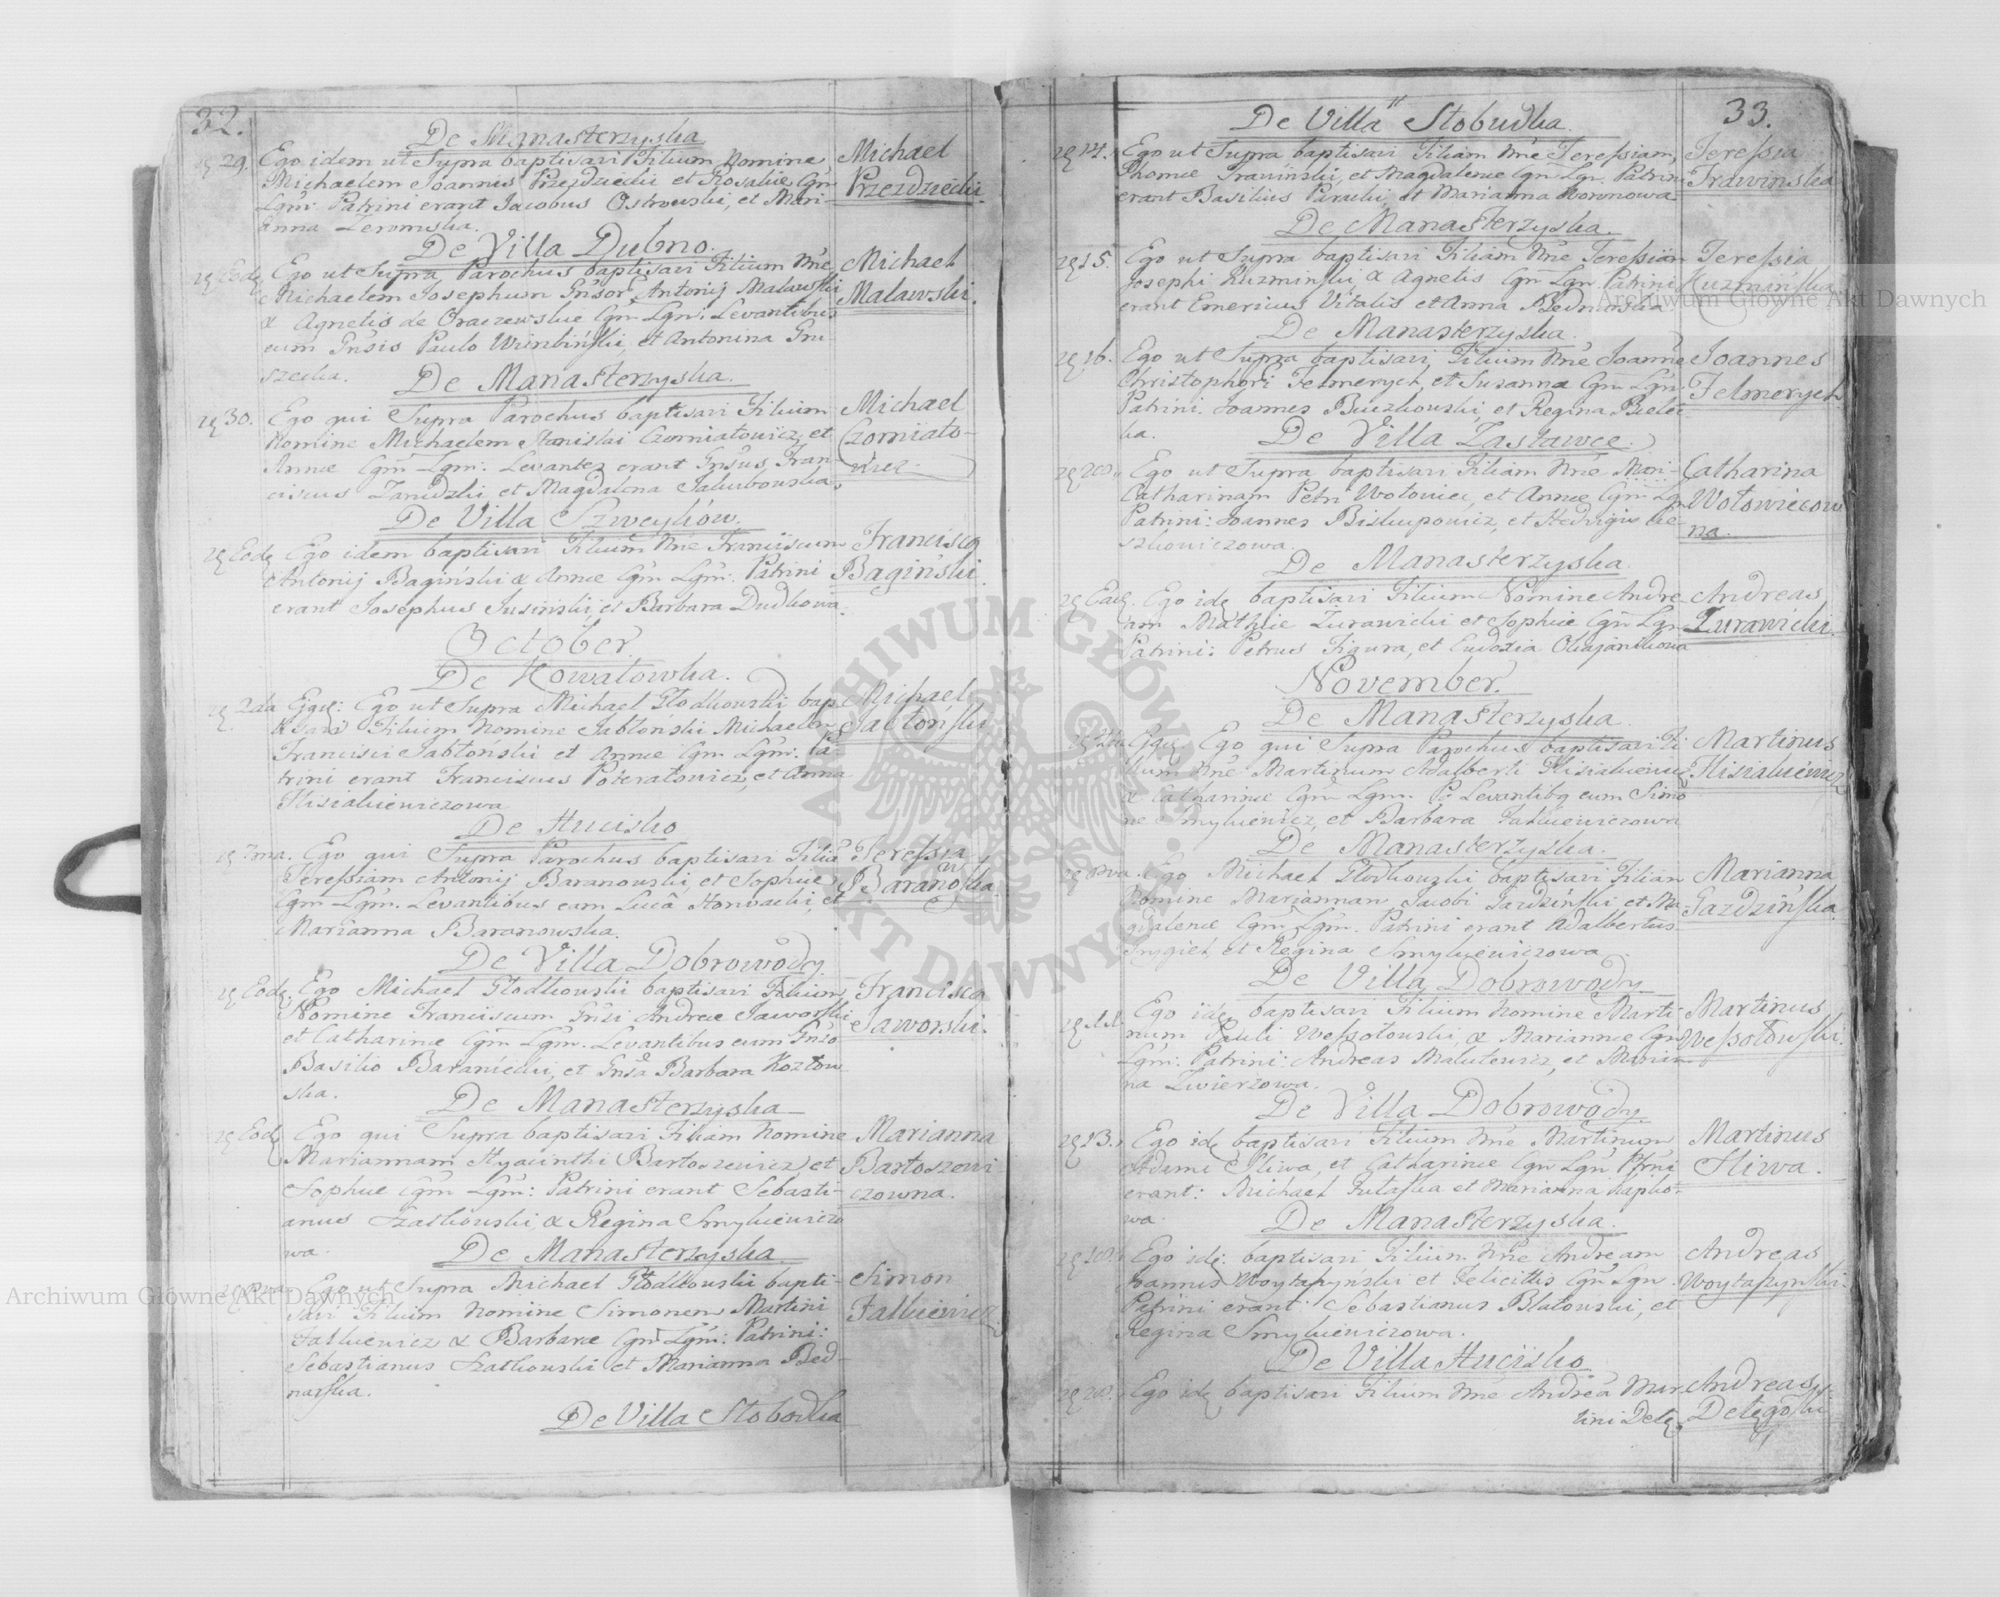 32.
De Manasterzyska
29. Ego idem ut Supra baptisavi Filium Nomine
Michaelem Joannis Przezdziecki et Rosaliæ Cgm
Lgm: Patrini erant Jacobus Ostrowski, et Mari-
anna
Michael
Przezdziecki.
De Villa Dubno.
Eodę Ego ut Supra Parochus baptisavi Filium Nñe
Michaelem Josephum Gñsor Antonij Malawski
& Agnetis de Oraczewskie Cgm Lgm: Levantibus
cum Gñsio Paulo et Antonina Gru-
szecka.
Michael
Malawski.
De Manasterzyska.
30. Ego qui Supra Parochus baptisavi Filium
Nomine Michaelem Stanislai Czorniatowicz, et
Annæ Cgm Lgm: Levantes erant Gñsus Fran-
ciscus et Magdalena Jakubowska,
Michael
Czorniato-
wicz
De Villa Szweyków.
Eodę Ego idem baptisavi Filium Nñe Franciscum
Antonij Bagiński & Annæ Cgm Lgm: Patrini
erant Josephus et Barbara Dudkowa.
Franciscq
Bagiński.
October.
De Kowalowka.
2da Ejqę: Ego ut Supra Michael Głodkowski bap
tisavi Filium Nomine Jabłoński Michaelem
Francisci Jabłonski et Annæ Cgm Lgm: Pa-
trini erant Franciscus et Anna
Michael
Jabłonski
De Hucisko
7ma. Ego qui Supra Parochus baptisavi Filiã
Teressiam Antonij Baranowski, et Sophiæ
Cgm Lgm. Levantibus eam Lucã et
Marianna Baranowska.
Teressia
Baranoska
De Villa Dobrowody.
Eodę. Ego Michael Głodkowski baptisavi Filium
Nomine Franciscum Gñsi Andreæ Jaworski
et Catharinæ Cgm Lgm. Levantibus eum Gñso
Basilio et Gñsã Barbara Kozłow
ska.
Franciscq
Jaworski.
De Manasterzyska
Eodę Ego qui Supra baptisavi Filiam Nomine
Mariannam Hyacinthi Bartoszewicz, et
Sophiæ Cgm Lgm: Patrini erant Sebasti-
anus Szatkowski & Regina Smykiewiczo
wa.
Marianna
Bartoszewi
czowna.
De Manasterzyska
8va Ego ut Supra Michael Głodkowski bapti-
savi Filium Nomine Simonem Martini
Falkiewicz & Barbaræ Cgm Lgm: Patrini:
Sebastianus Szatkowski et Marianna Bed-
narska.
Simon
Falkiewicz
De Villa Słobodka
33.
De Villa Słobudka.
14. Ego ut Supra baptisavi Filiam Nñe Teressiam,
Thomæ Trawinski, et Magdalenæ Cgm Lgm. Patrini
erant Basilius et Marianna
Teressia
Trawinska
De Manasterzyska.
15. Ego ut Supra baptisavi Filiam Nñe Teressiam
Josephi Kuzminski & Agnetis Cgm Lgm Patrini
erant Emericus Vitalis et Anna Bednarska
Teressia
Kuzmińska
De Manasterzyska.
16. Ego ut Supra baptisavi Filium Nñe Joannẽ
Christophori Telmerych, et Susannæ Cgm Lgm:
Patrini. Joannes et Regina Biele
ka.
Joannes
Telmerych.
De Villa Zastawce.
20. Ego ut Supra baptisavi Filiam Nñe Mari-
Catharinam Petri Wołowiec, et Annæ Cgm Lg
Patrini: Joannes Biskupowicz, et Hedvigis
Catharina
Wołowiecow
na.
De Manasterzyska
Eadę. Ego idę baptisavi Filium Nomine Andre-
am Mathiæ Zurawicki et Sophiæ Cgm Lgm
Patrini: Petrus Figura, et Eudoxia
Andreas
Zurawicki.
November.
De Manasterzyska
Ejqę. Ego qui Supra Parochus baptisavi Fi-
lium Nñe Martinum Adalberti Klisiakiewicz
& Catharinæ Cgm Lgm. Levantibq eum Simo
ne Smykiewicz, et Barbara Falkiewiczowa
Martinus
Klisiakiewicz
De Manasterzyska.
8va. Ego Michael Głodkowski baptisavi Filiam
Nomine Mariannam Jacobi Gazdzinski et Ma-
gdalenæ Cgm Lgm. Patrini erant Adalbertus
et Regina Smykiewiczowa
Marianna
Gazdzińska
De Villa Dobrowody
11. Ego idę baptisavi Filium Nomine Marti-
num Pauli Wessołowski, & Mariannæ Cgm
Lgm: Patrini: Andreas et Marian
na
Martinus
Wessołowski.
De Villa Dobrowody.
13. Ego idę baptisavi Filium Nñe Martinum
Adami Sliwa, et Catharinæ Cgm Lgm Ptrni
erant: Michael et Marianna
wa.
Martinus
Sliwa.
De Manasterzyska.
Ego idę: baptisavi Filium Nñe Andream
Joannis Woytaszyński et Felicitis Cgm Lgm
Patrini erant: Sebastianus Blatowski, et
Regina Smykiewiczowa.
Andreas
Woytaszynski.
De Villa Hucisko
20. Ego idę baptisavi Filium Nñe Andreã Mar-
tini Delę
Andreas
Delęgoski
Archiwum Główne Akt Dawnych
Archiwum Główne Akt Dawnych
ARCHIWUM GŁÓWNE AKT DAWNYCH